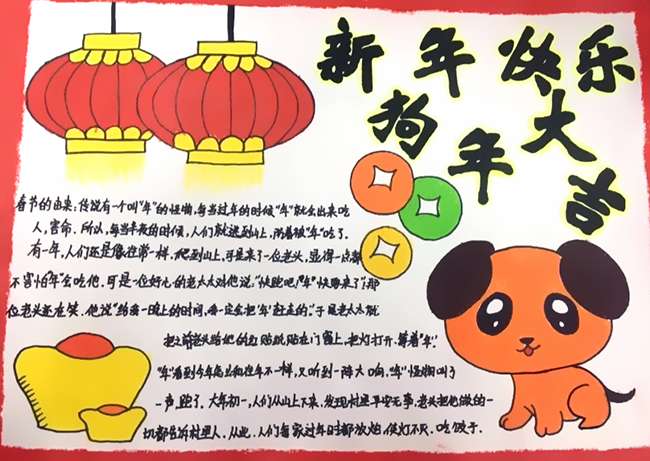 新年快乐
狗年大吉
春节的由来：传说有一个叫"年"的怪物，每当过年的时候"年"就会出来吃
人，害命。所以，每当年来的时候，人们就逃到山上，防着被"年"吃了。
有一年，人们还是像往常一样，爬到山上，可是来了一位老头，显得一点都
不害怕"年"会吃他，可是一位好心的老太太对他说，"快跑吧！"年"快要来了"，那
位老头还在笑，他说"给我一晚上的时间，我一定会把'年'赶走的。"于是老太太就
把之前老头给她的红贴纸贴在门窗上，把灯打开，等着"年"。
"年"看到今年怎么和往年不一样，又听到一阵大响，"年"怪物叫了
一声，跑了。大年初一，人们从山上下来，发现村里平安无事，老头把他做的一
切都告诉村里人。从此，人们每家过年时都放炮，使灯不灭，吃饺子。